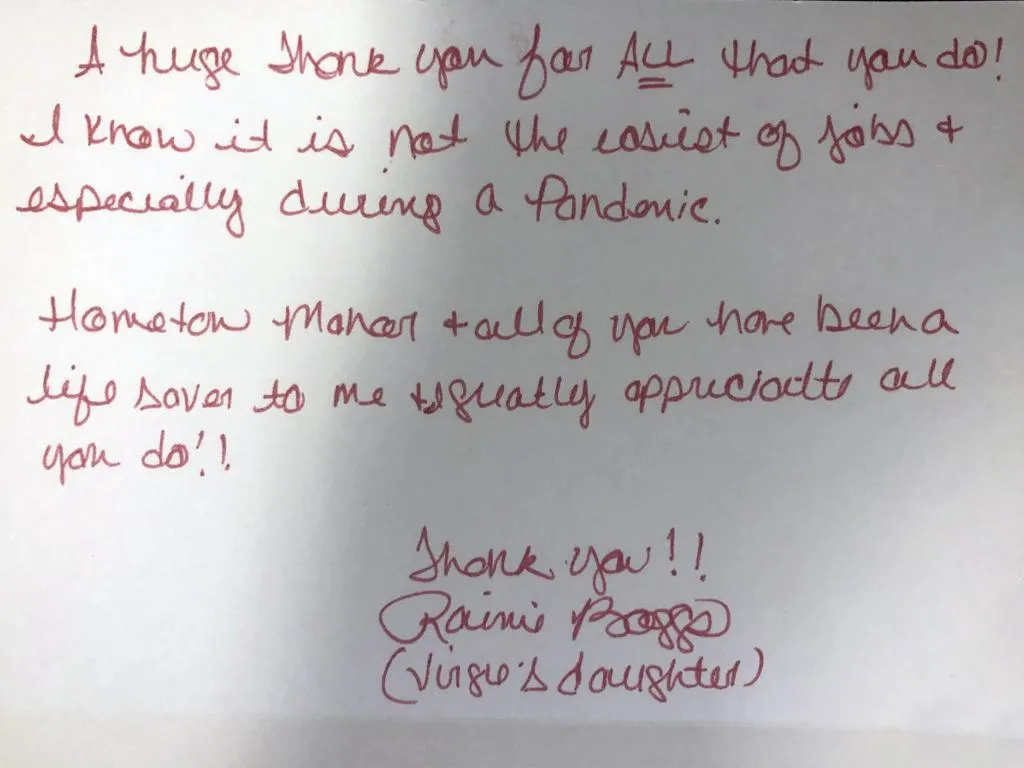 A huge Thank you for ALL that you do!
I know it is not the easiest of jobs +
especially during a Pandemic.
Hometown Manor + all of you have been a
life saver to me + greatly appreciate all
you do!!
Thank you!!
Boggs
(Virgie's daughter)